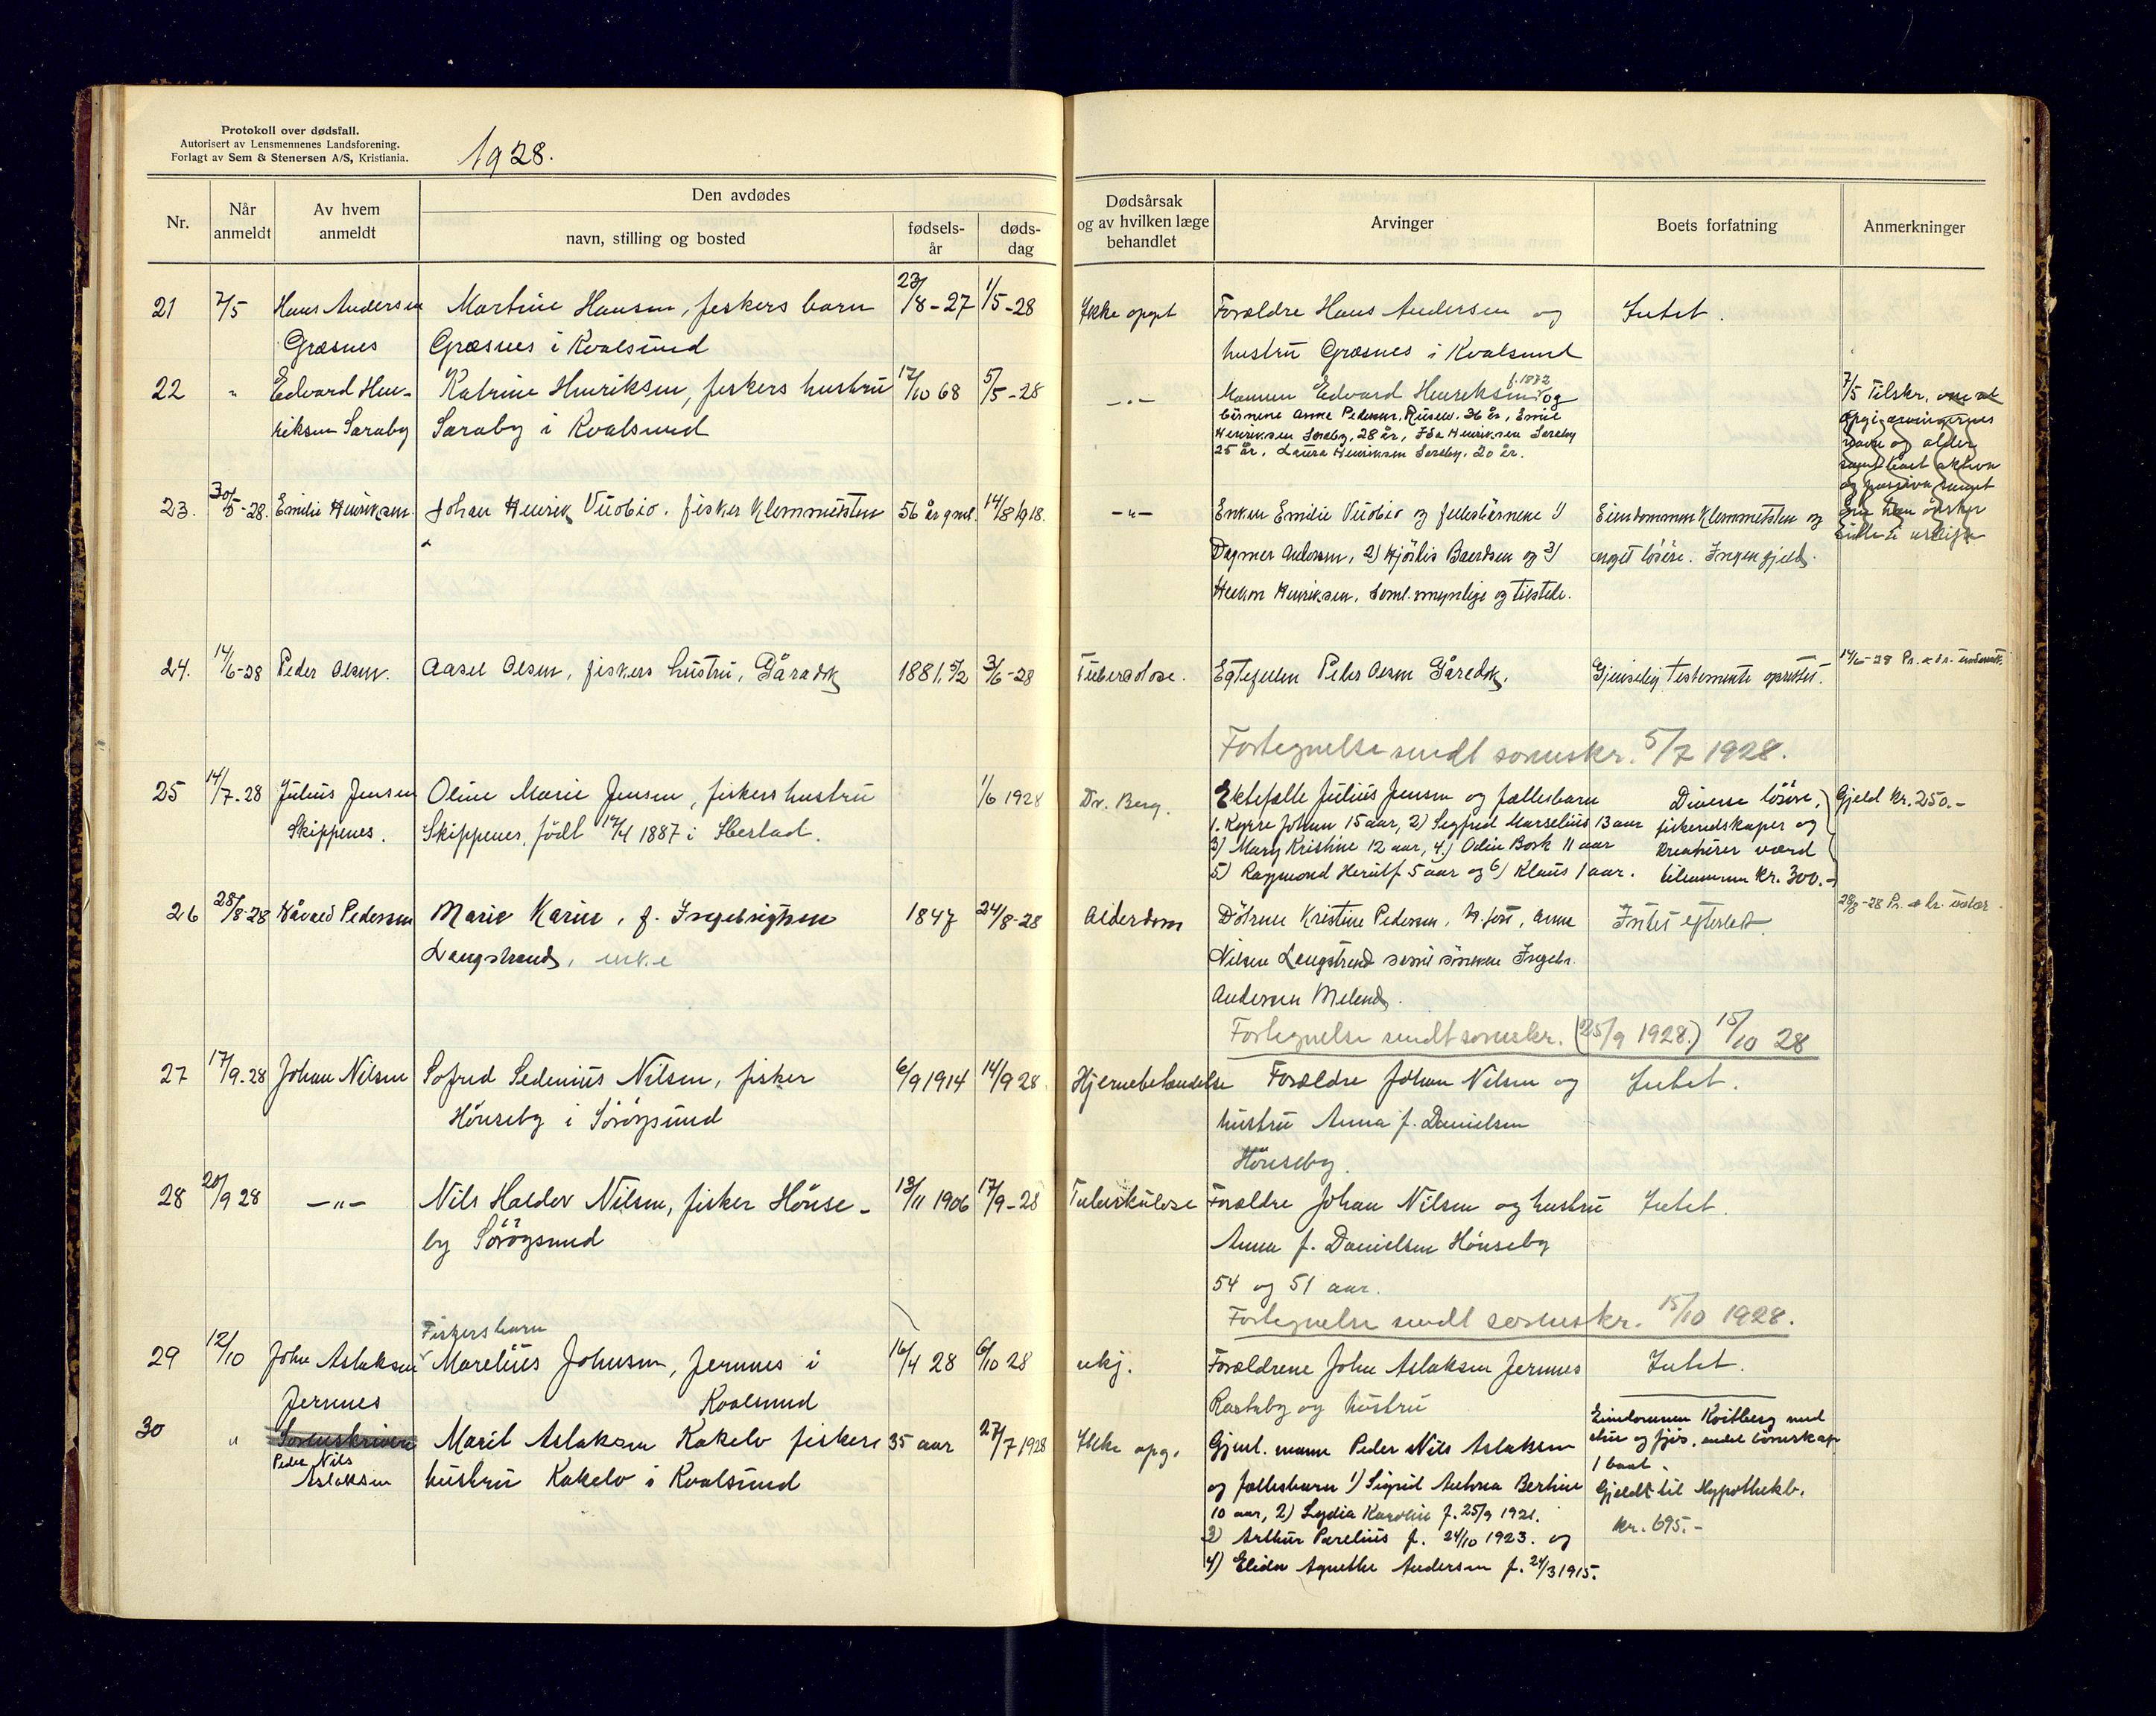 Protokoll over dødsfall.
Autorisert av Lensmennenes Landsforening.
Forlagt av Sem & Stenersen A/S, Kristiania.
1928.
Nr.
Når anmeldt
Av hvem anmeldt
Den avdødes
navn, stilling og bosted
fødsels-år
døds-dag
Dødsårsak og av hvilken læge behandlet
Arvinger
Boets forfatning
Anmerkninger
21 7/5 Hans Andersen Martine Hansen, fiskers barn 23/8-27 1/5-28 Ikke opgt Forældre Hans Andersen og Intet.
Græsnes Græsnes i Kvalsund hustru Græsnes i Kvalsund
22 " Edvard Hen- Katrine Henriksen, fiskers hustru 17/10 68 5/5-28 -"- Mannen Edvard Henriksen f. 1872 og 7/5 Tilskr. om at
riksen Saraby Saraby i Kvalsund børnene Anna Pedersen, 36 år, Emil opgi arvingernes
Henriksen Saraby, 28 år, Ida Henriksen Saraby navn og alder
25 år, Laura Henriksen Saraby, 20 år. samt boets aktiva
og passiva samt
23. 30/5-28. Emilie Henriksen. Johan Henrik Vuobio. fisker Klemmetsten 56 år gml. 14/8 1918. -"- Enken Emilie Vuobio og fellesbørnene 1) Eiendommen Klemmetsten og
Dagmar Andersen, 2) Hjørdis Baerdsen og 3) noget løsøre. Ingen gjeld.
Henriksen. Saml. myndige og tilstede.
24. 14/6-28 Peder Olsen. Aasel Olsen, fiskers hustru, 1881. 5/2 3/6-28 Tuberkolose. Egtefellen Peder Olsen Gjensidig testamente oprettet. 14/6-28
Fortegnelse sendt sorenskr. 5/7 1928.
25 14/7-28 Julius Jensen Oline Marie Jensen, fiskers hustru 1/6 1928 Dr. Berg. Ektefælle Julius Jensen og fællesbarn Diverse løsøre, Gjeld kr. 250.-
Skippenes. Skippenes, født 17/4 1887 i Ibestad. 1. Johan 15 aar, 2) Sigfred Marselius 13 aar fiskeredskaper og
3) Mary Kristine 12 aar, 4) Odin Bork 11 aar kreaturer værd
5) Raymond Herulf 5 aar og 6) Klaus 1 aar. tilsammen kr. 300.-
26 28/8-28 Håvald Pedersen Marie Karin, f. Ingebrigtsen 1847 24/8-28 Alderdom Døtrene Kristine Pedersen, H.fest, Anne Intet efterlatt. 28/8-28
Langstrand, enke Nilsen Langstrand samt Ingebr.
Andersen Meland.
Fortegnelse sendt sorenskr. (25/9 1928.) 15/10 28
27 17/9-28 Johan Nilsen Sofred Sedenius Nilsen, fisker 6/9 1914 14/9 28. Hjernebetændelse Forældre Johan Nilsen og Intet.
Hönseby i Sörøysund hustru Anna f. Danielsen
Hönseby.
28 20/9 28 -"- Nils Haldor Nilsen, fisker Hönse- 13/11 1906 17/9-28 Tuberkulose Forældre Johan Nilsen og hustru Intet.
by Sörøysund Anna f. Danielsen Hönseby
54 og 51 aar.
Fortegnelse sendt sorenskr. 15/10 1928.
Fiskers barn
29 12/10 John Aslaksen Marelius Johnsen, Jernnes i 16/4 28 6/10 28 ukj. Forældrene John Aslaksen Jernnes Intet.
Jernnes Kvalsund og hustru
30 " Sorenskriveren Marit Aslaksen Kakelv fiskers 35 aar 27/7 1928 Ikke opg. Gjenl. mann Peder Nils Aslaksen Eiendommen Kvitberg med
Peder Nils Aslaksen hustru Kakelv i Kvalsund og fællesbarn 1) Sigrid Antona Bertine hus og fjös,
10 aar, 2) Lydia Karoline f. 25/9 1921. 1 baat.
3) Arthur Parelius f. 24/10 1923. og Gjeldt til Hypothekb.
4) Elida Agnethe Andersen f. 24/3 1915. kr. 695.-